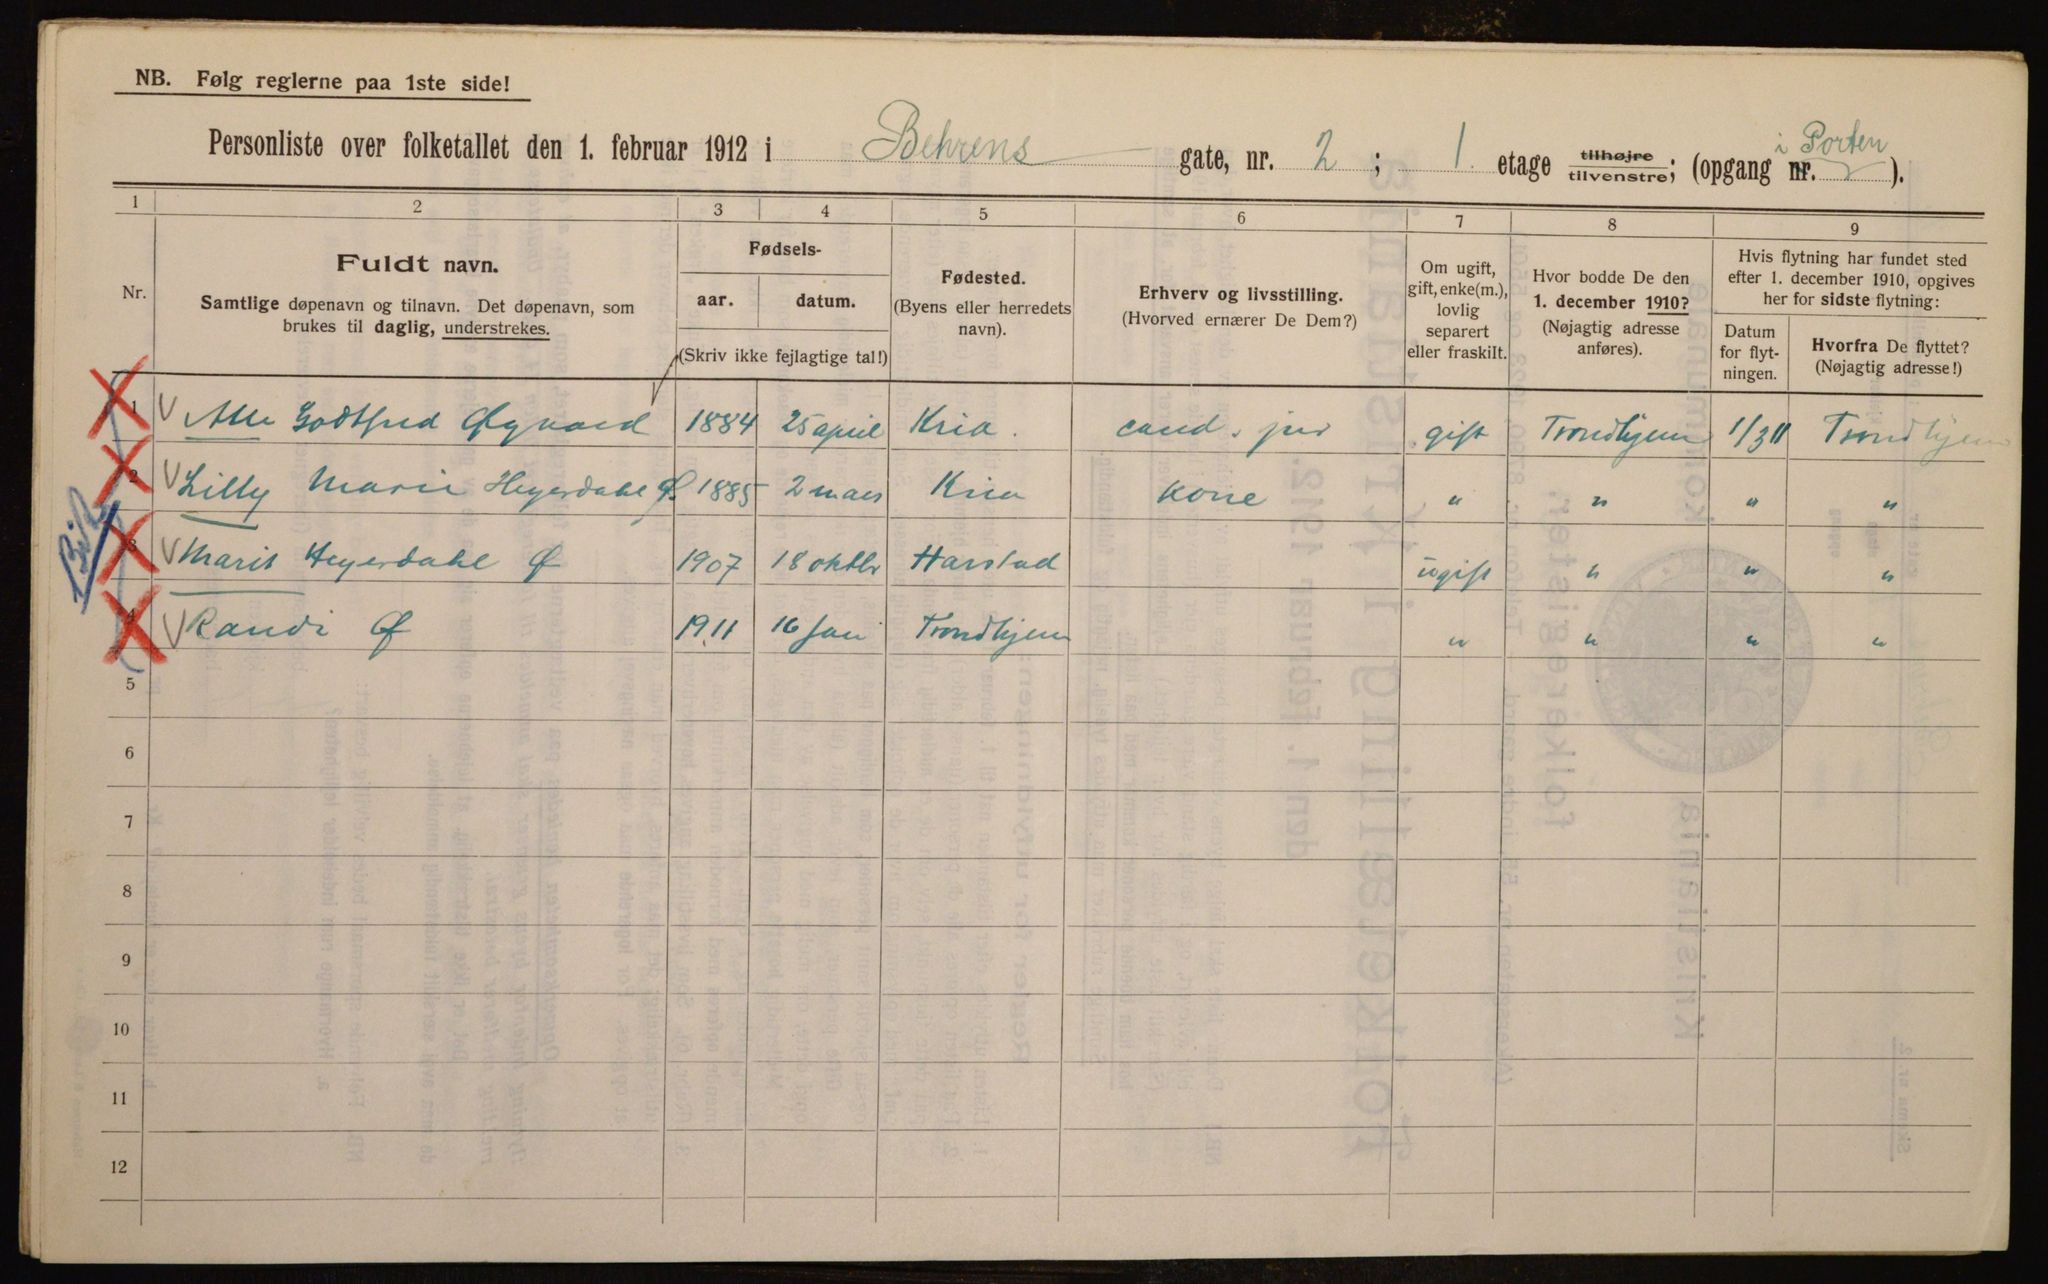 NB. Følg reglerne paa 1ste side!
i Porten
Personliste over folketallet den 1. februar 1912 i Behrens gate, nr. 2; 1 etage tilhøjre tilvenstre; (opgang nr. ).
1 2 3 4 5 6 7 8 9
Nr.
Fuldt navn.
Samtlige døpenavn og tilnavn. Det døpenavn, som
brukes til daglig, understrekes.
Fødsels-
aar. datum.
(Skriv ikke fejlagtige tal!)
Fødested.
(Byens eller herredets
navn).
Erhverv og livsstilling.
(Hvorved ernærer De Dem?)
Om ugift,
gift, enke(m.),
lovlig
separert
eller fraskilt.
Hvor bodde De den
1. december 1910?
(Nøjagtig adresse
anføres).
Hvis flytning har fundet sted
efter 1. december 1910, opgives
her for sidste flytning:
Datum
for flyt-
ningen.
Hvorfra De flyttet?
(Nøjagtig adresse!)
1 Atle Godtfred Øygaard 1884 25 april Kria. cand. jur gift Trondhjem 1/3 11 Trondhjem
2 Lilly Marie Heyerdahl Ø. 1885 2 mars Kria kone " " " "
3 Marit Heyerdahl Ø 1907 18 oktbr Harstad ugift " " "
4 Randi Ø 1911 16 jan Trondhjem " " " "
5
6
7
8
9
10
11
12